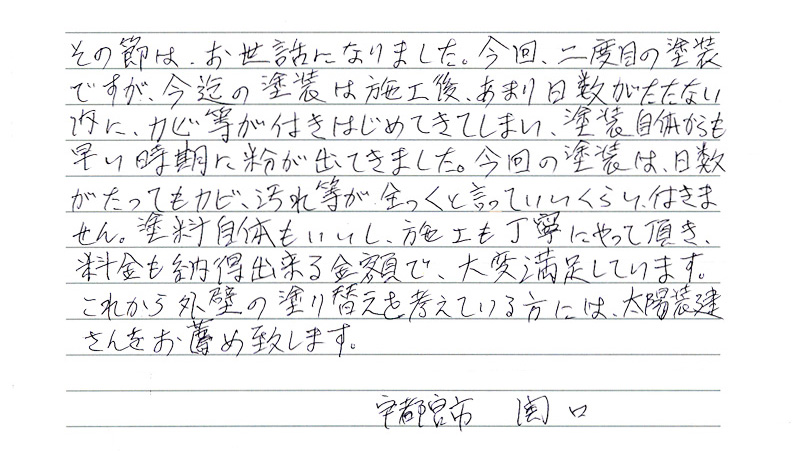 その節は、お世話になりました。今回、二度目の塗装
ですが、今迄の塗装は施工後、あまり日数がたたない
内に、カビ等が付きはじめてきてしまい、塗装自体からも
早い時期に粉が出てきました。今回の塗装は、日数
がたってもカビ、汚れ等が全っくと言っていいくらい、付きま
せん。塗料自体もいいし、施工も丁寧にやって頂き、
料金も納得出来る金額で、大変満足しています。
これから外壁の塗り替えを考えている方には、太陽装建
さんをお薦め致します。
宇都宮市 関口